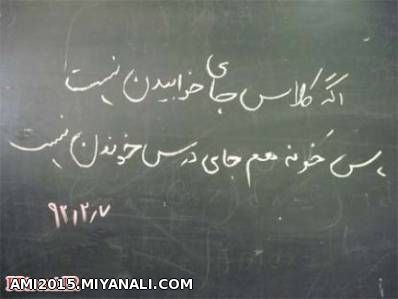 اگه کلاس جای خوابیدن نیست
پس خونه هم جای درس خوندن نیست
۹۲٫۲٫۷
AMI2015.MIYANALI.COM